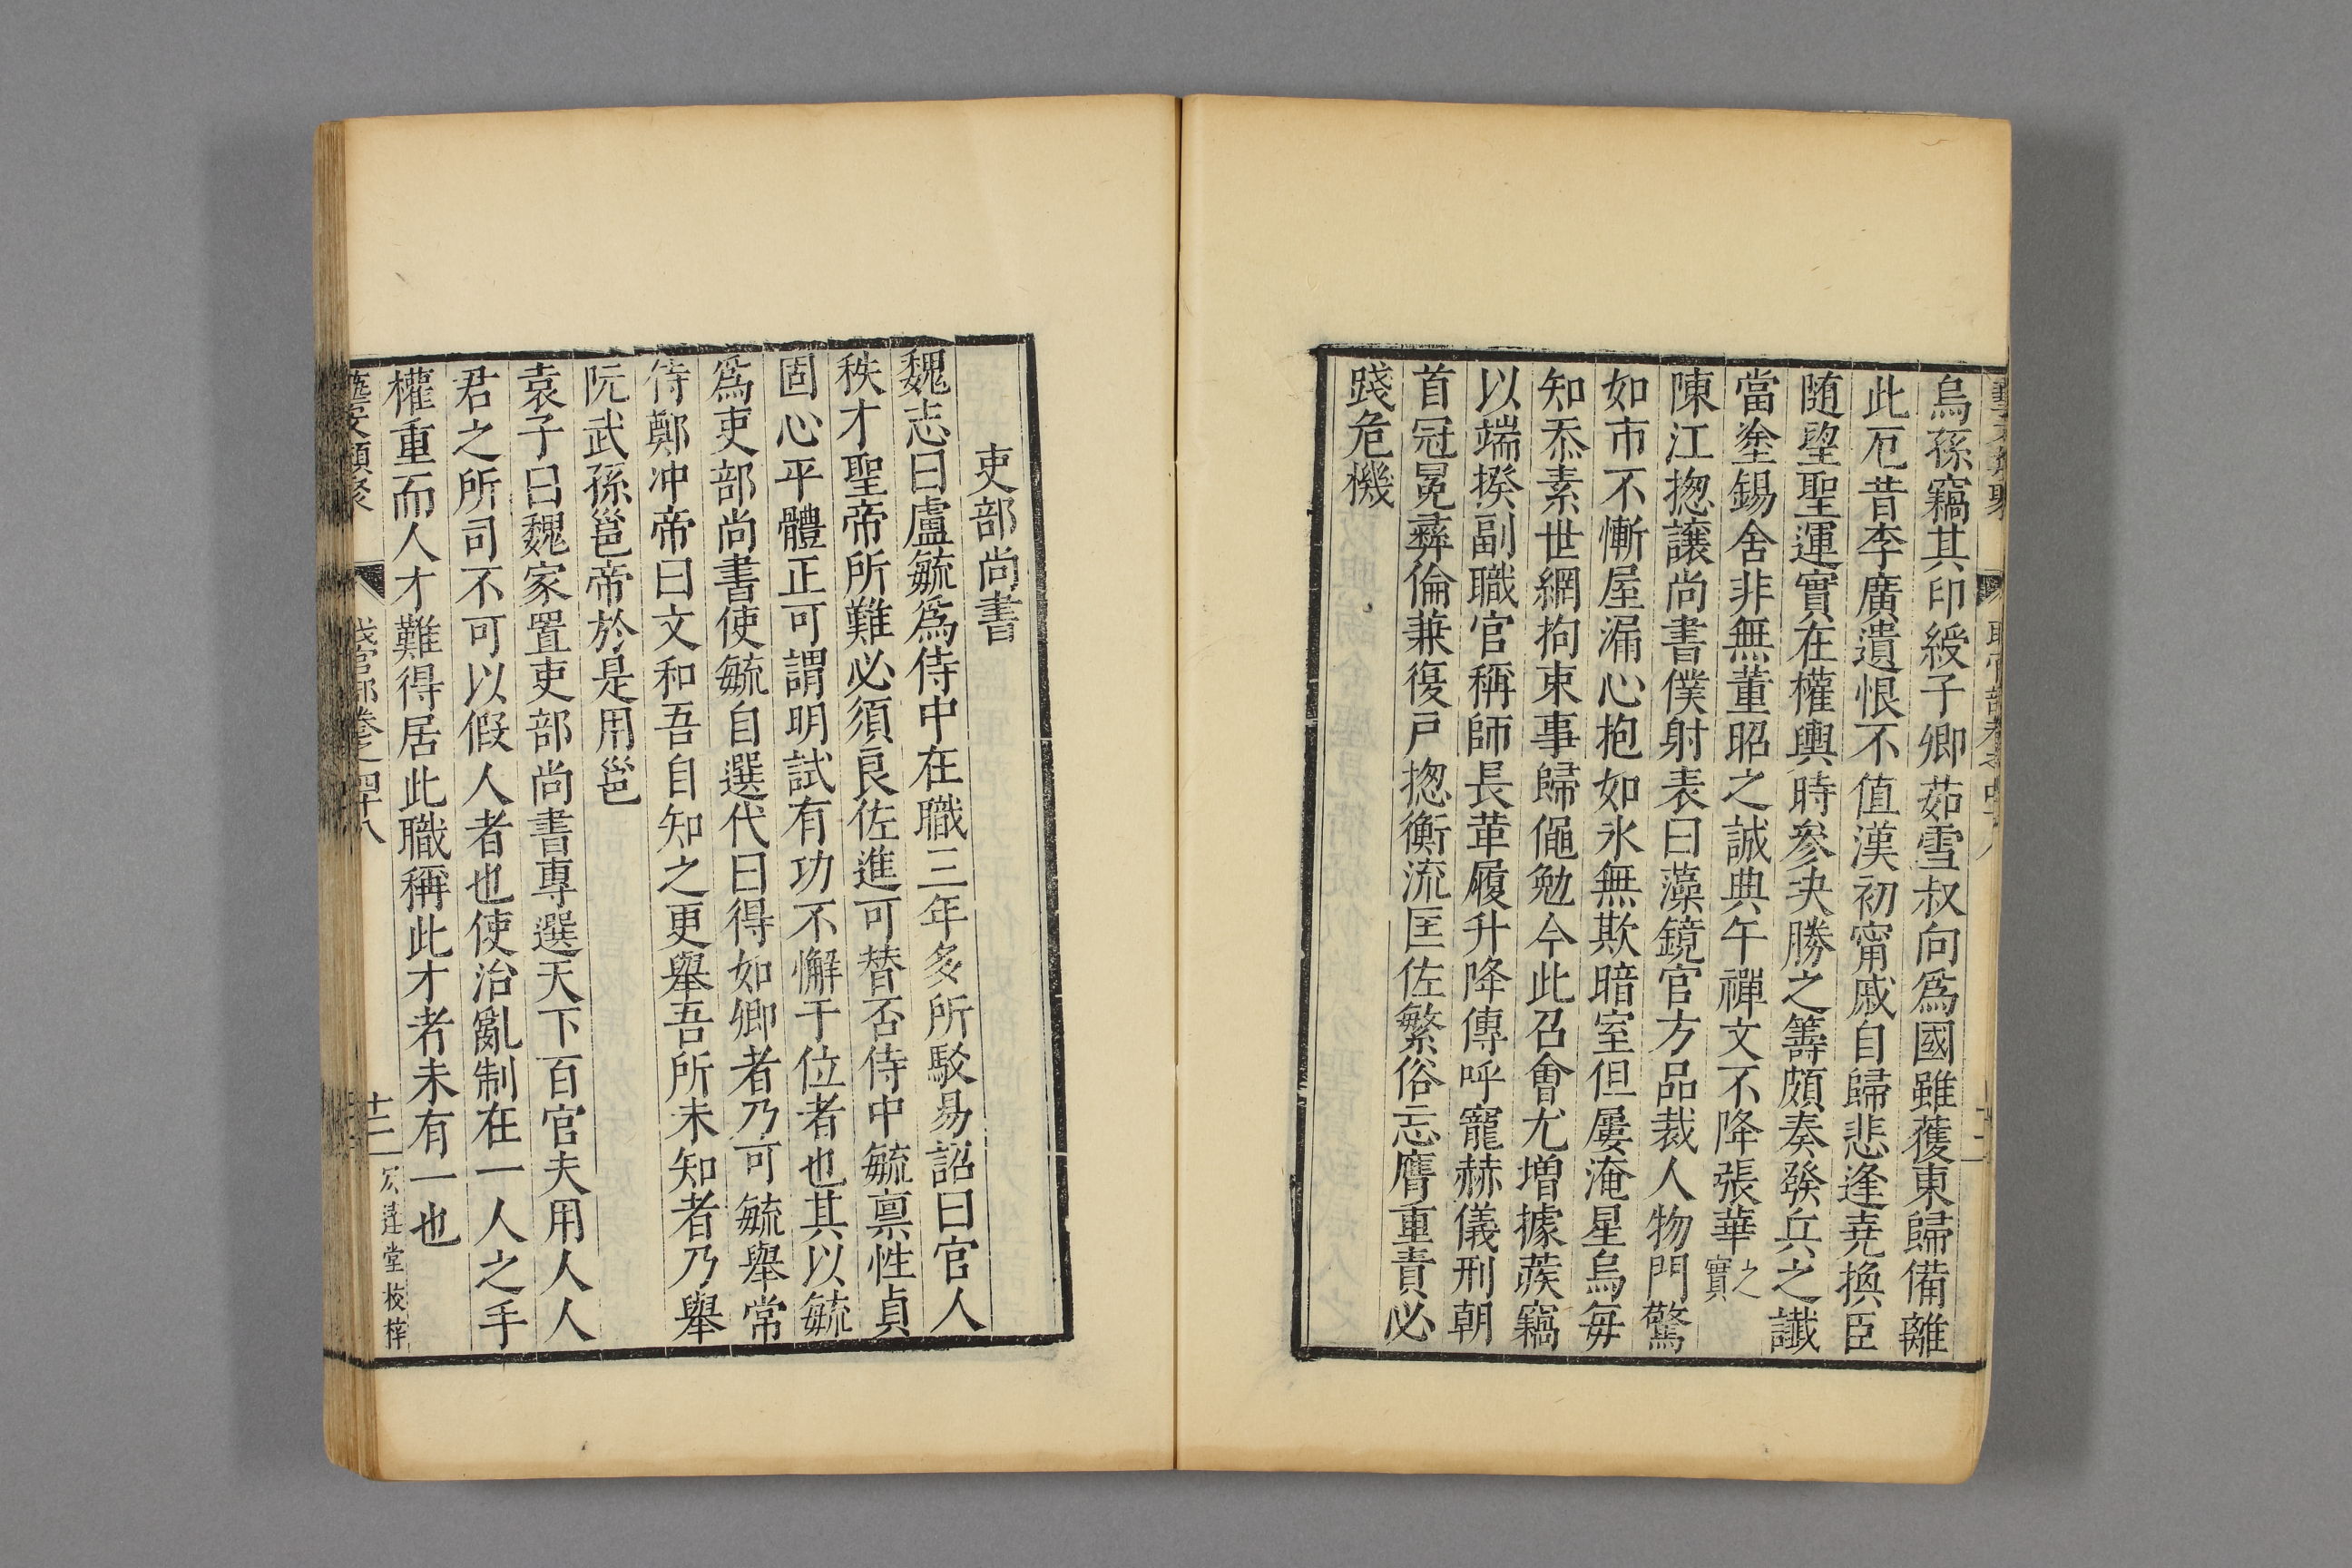 烏孫竊其印綬子卿茹雪叔向爲國雖蒦東歸備離
此厄昔李廣遺恨不值漢初甯戚自歸悲逢堯換臣
随望聖運實在權輿時參决勝之籌頗奏發兵之讖
當塗錫舍非無董昭之誠典午禪文不降張華之實
陳江揔讓尚書僕射表曰藻鏡官方品裁人物門驚
如市不慚屋漏心抱如氷無欺暗室但屢淹星烏每
知忝素世網拘束事歸僶勉今此召會尤增據蒺竊
以端揆副職官稱師長革履升降傳呼寵赫儀刑朝
首冠冕彝倫兼復戸揔衡流匡佐繁俗忘膺重責必
踐危機
吏部尚書
魏志曰盧毓爲侍中在職三年多所駁易詔曰官人
秩才聖帝所難必須良佐進可替否侍中毓禀性貞
固心平體正可謂明試有功不懈于位者也其以毓
爲吏部尚書使毓自選代曰得如卿者乃可毓舉常
侍鄭冲帝曰文和吾自知之更舉吾所未知者乃舉
阮武孫邕帝於是用邕
袁子曰魏家置吏部尚書專選天下百官夫用人人
君之所司不可以假人者也使治亂制在一人之手
權重而人才難得居此職稱此才者未有一也
藝文類聚 職官部卷之四十八 十二 宏達堂校梓